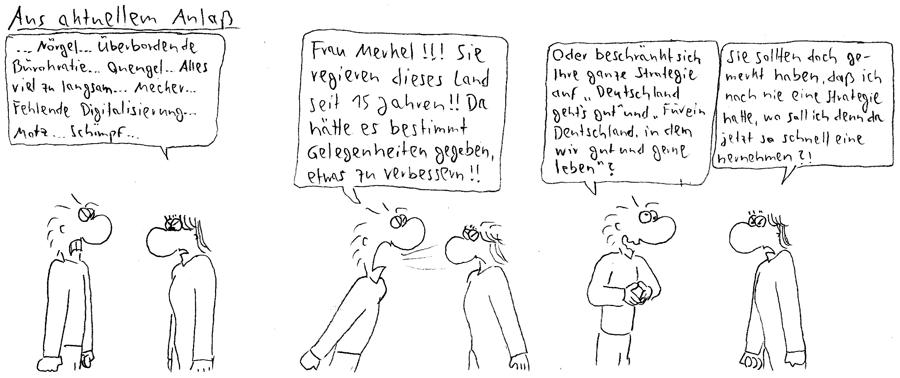 Aus aktuellem Anlaß
... Nörgel... Überbordende
Bürokratie... Quengel.. Alles
viel zu langsam... Mecker...
Fehlende Digitalisierung...
Motz... Schimpf...
Frau Merkel!!! Sie
regieren dieses Land
seit 15 Jahren!! Da
hätte es bestimmt
Gelegenheiten gegeben,
etwas zu verbessern!!
Oder beschränkt sich
Ihre ganze Strategie
auf „Deutschland
geht's gut" und „Für ein
Deutschland, in dem
wir gut und gerne
leben"?
Sie sollten doch ge-
merkt haben, daß ich
noch nie eine Strategie
hatte, wo soll ich denn da
jetzt so schnell eine
hernehmen?!